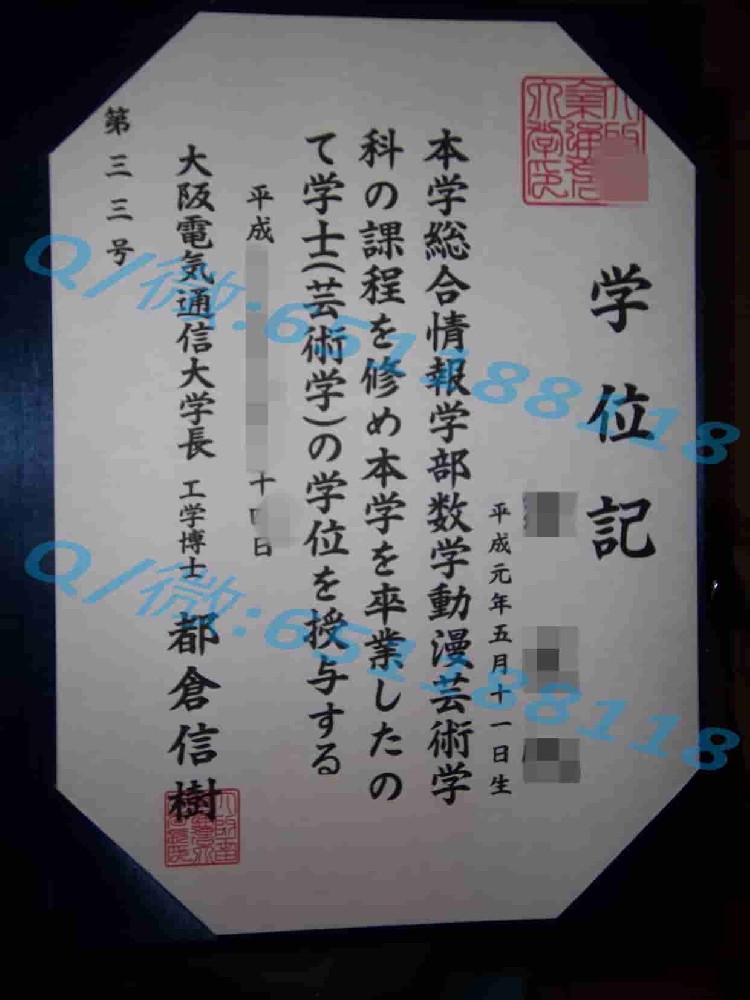 学位記
平成元年五月十一日生
本学総合情報学部数学動漫芸術学
科の課程を修め本学を卒業したの
て学士(芸術学)の学位を授与する
平成
十
日
大阪電気通信大学長 工学博士 都倉信樹
第三三号
Q/微:651188118
Q/微:651188118